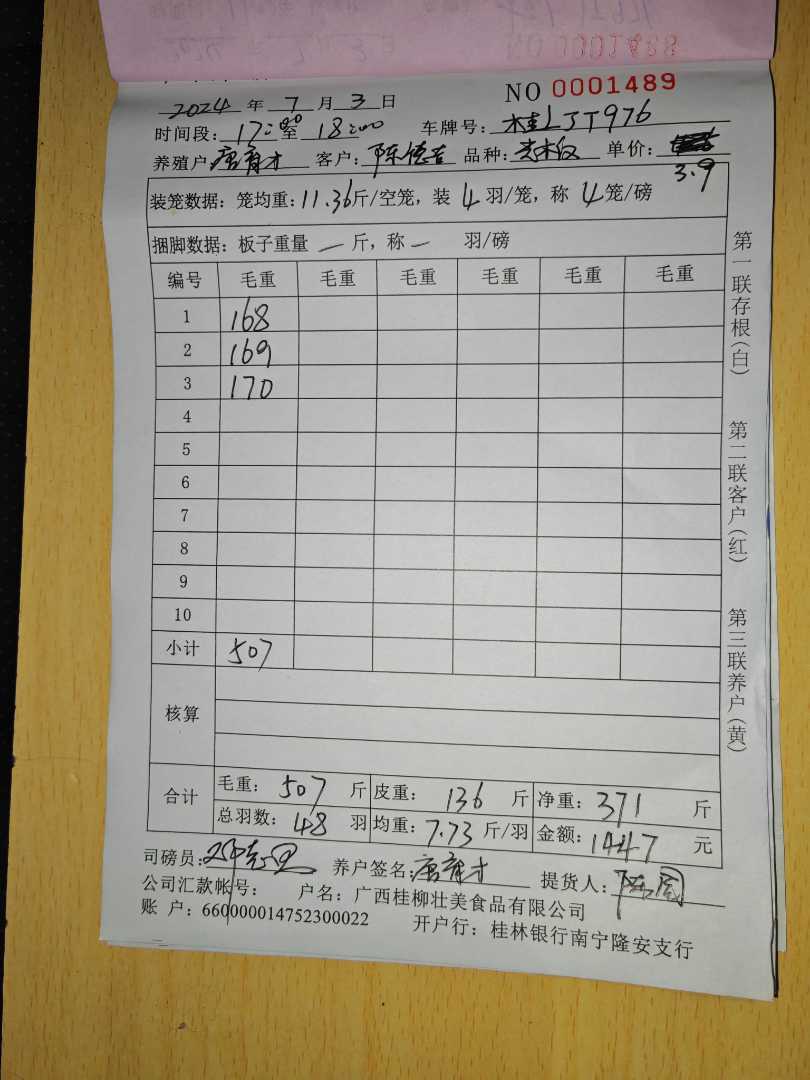 NO 0001488
NO 0001489
2024 年 7 月 3 日
时间段: 17:00 至 18:00 车牌号: 桂LJT976
养殖户 唐育才 客户: 陈德吉 品种: 单价: 3.9
装笼数据: 笼均重: 11.36 斤/空笼, 装 4 羽/笼, 称 4 笼/磅
捆脚数据: 板子重量 — 斤, 称 — 羽/磅
编号 毛重 毛重 毛重 毛重 毛重 毛重
1 168
2 169
3 170
4
5
6
7
8
9
10
小计 507
核算
合计 毛重: 507 斤 皮重: 136 斤 净重: 371 斤
总羽数: 48 羽 均重: 7.73 斤/羽 金额: 1447 元
司磅员: 养户签名: 唐育才 提货人:
公司汇款帐号: 户名: 广西桂柳壮美食品有限公司
账 户: 660000014752300022 开户行: 桂林银行南宁隆安支行
第一联存根(白)
第二联客户(红)
第三联养户(黄)